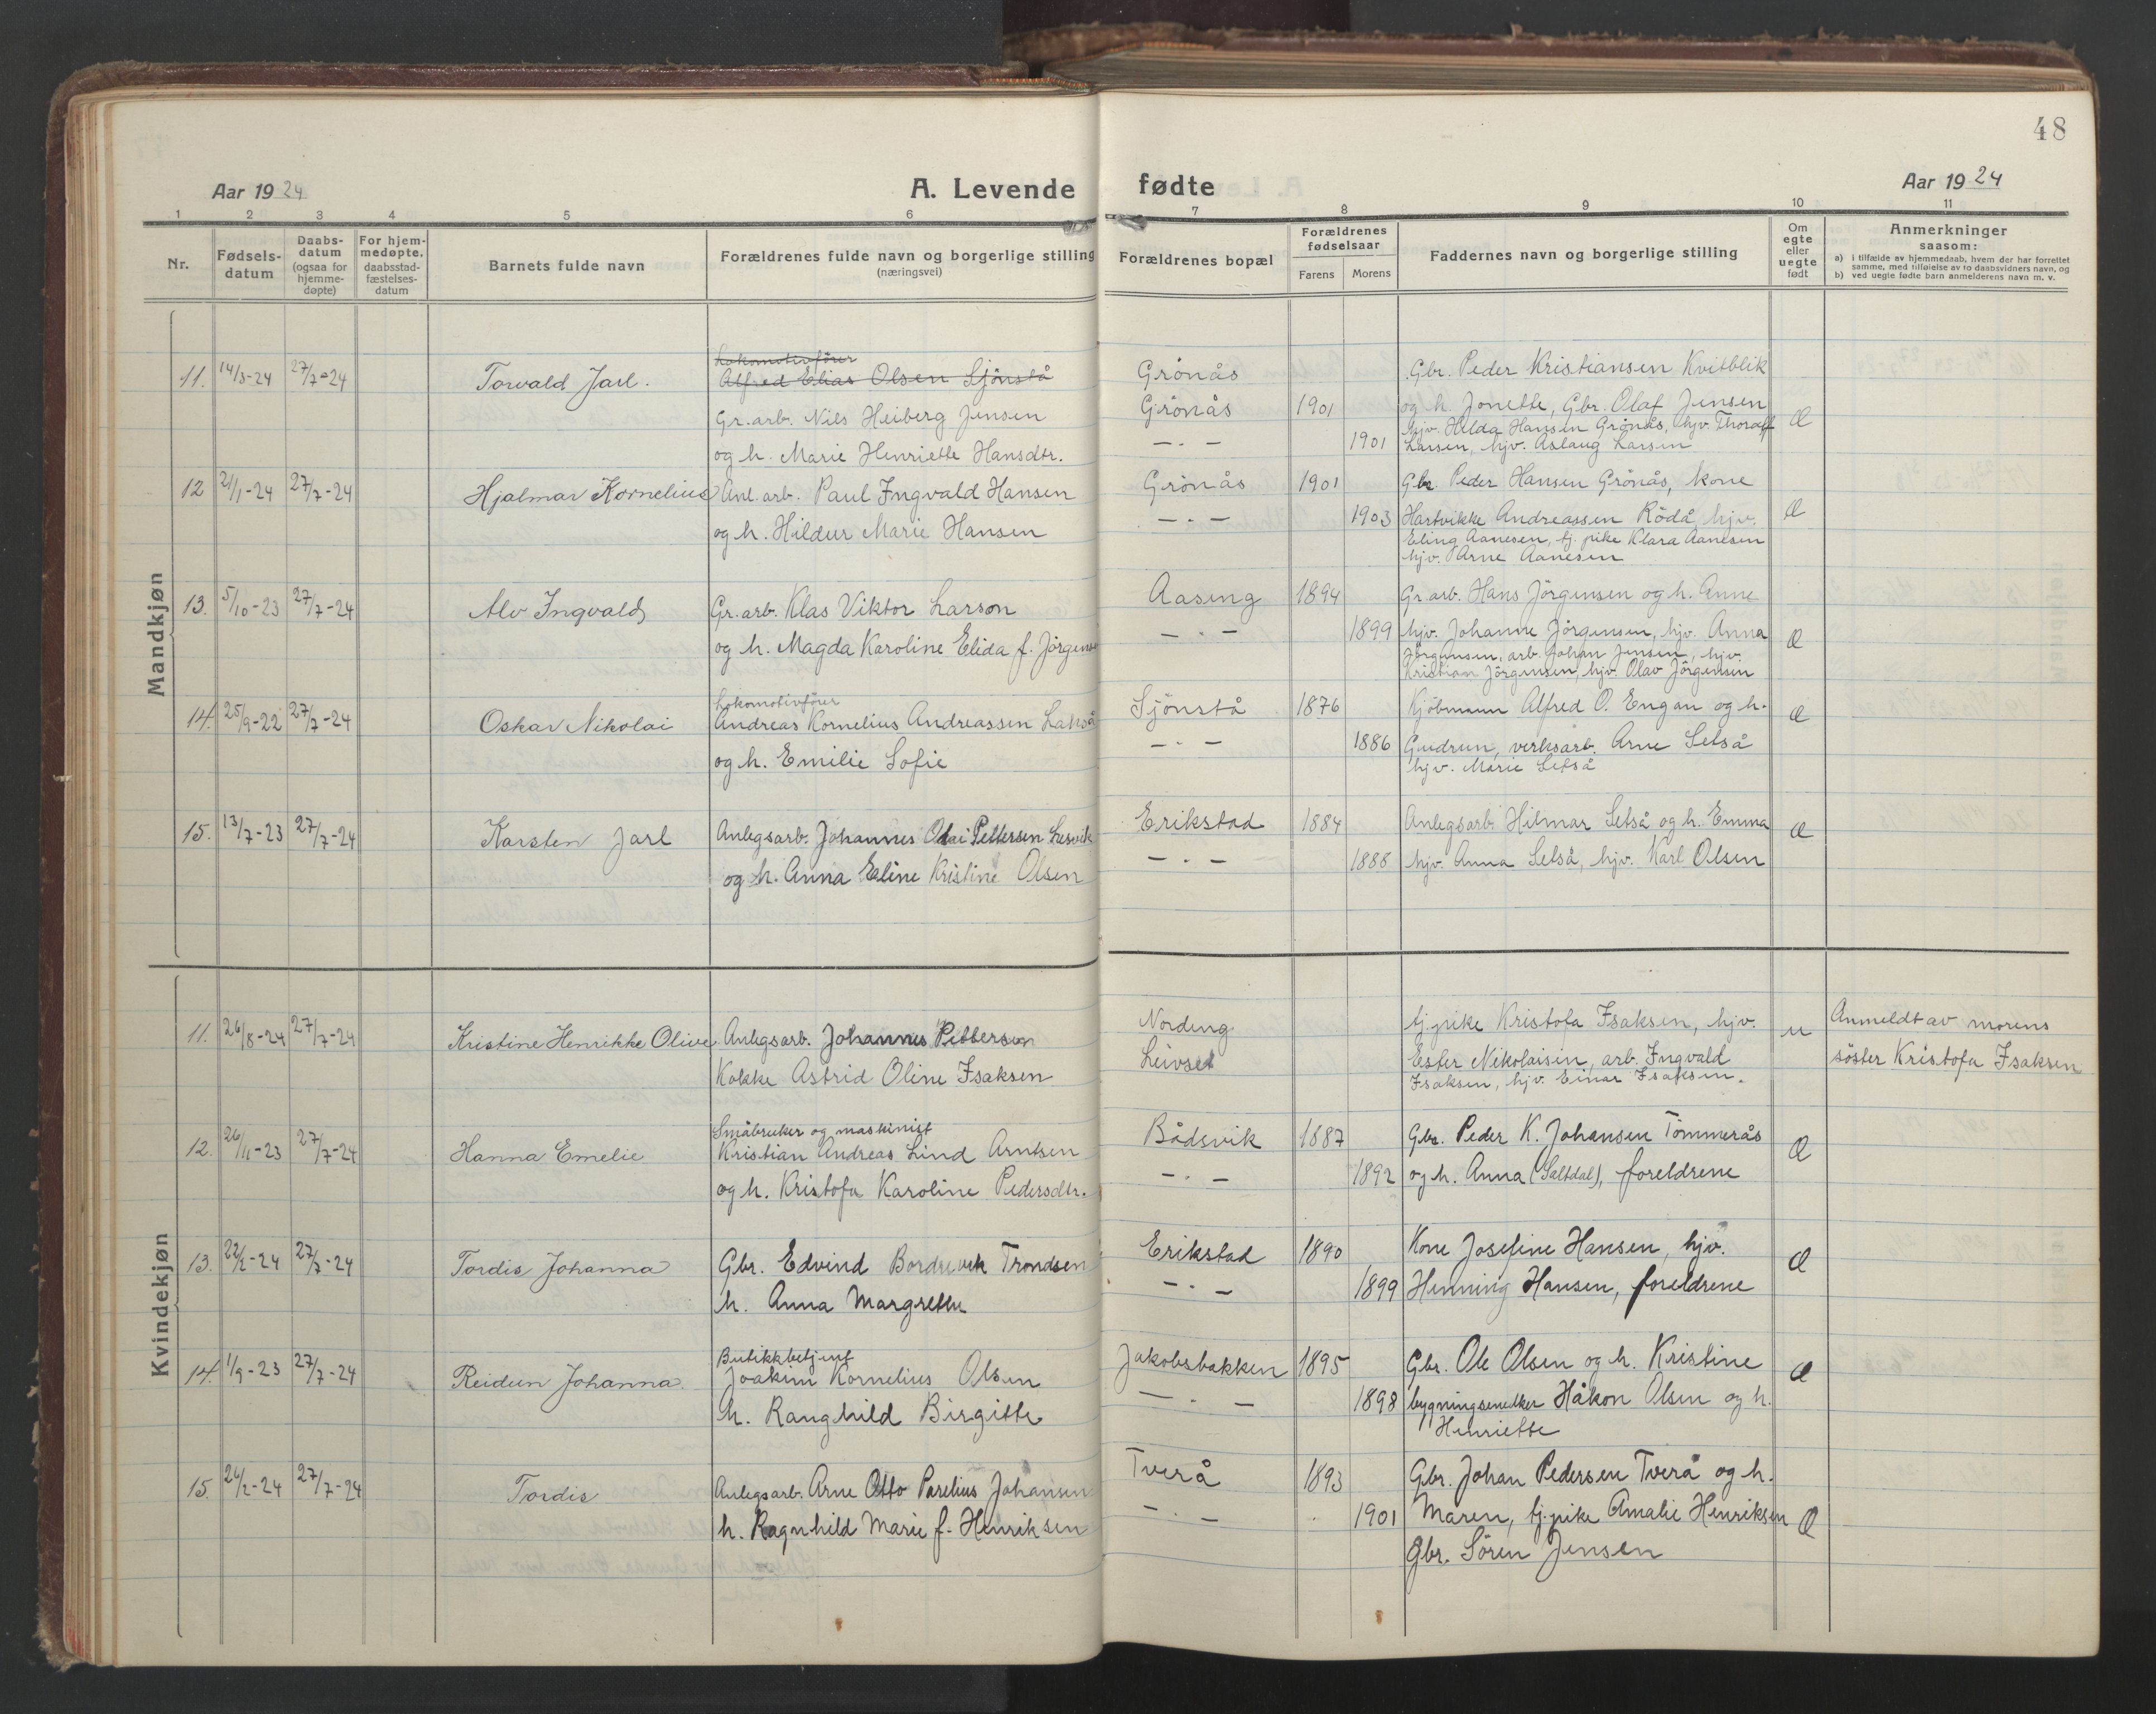 48
Aar 1924
A. Levende fødte
Aar 1924
1 2 3 4 5 6 7 8 9 10 11
Nr.
Fødsels-
datum
Daabs-
datum
(ogsaa for
hjemme-
døpte)
For hjem-
medøpte,
daabsstad-
fæstelses-
datum
Barnets fulde navn
Forældrenes fulde navn og borgerlige stilling
(næringsvei)
Forældrenes bopæl
Forældrenes
fødselsaar
Farens Morens
Faddernes navn og borgerlige stilling
Om
egte
eller
uegte
født
Anmerkninger
saasom:
a) i tilfælde av hjemmedaab, hvem der har forrettet
samme, med tilføielse av to daabsvidners navn, og
b) ved uegte fødte barn anmelderens navn m. v.
Mandkjøn
11. 14/3-24 27/7-24 Torvald Jarl.
Lokomotivfører
Alfred Elias Olsen Sjönstå
Gr.arb. Niels Heiberg Jensen
og h. Marie Henriette Hansdtr.
Grönås
Grönås 1901
— . — 1901
Gbr. Peder Kristiansen Kvitblik
og h. Jonette, Gbr. Olaf Jensen
hjv. Hilda Hansen Grönås, hjv. Thoralf
Larsen, hjv. Aslaug Larsen
Æ
12 21/1-24 27/7-24 Hjalmar Kornelius
Anl.arb. Paul Ingvald Hansen
og h. Hildur Marie Hansen
Grönås 1901
— . — 1903
Gbr. Peder Hansen Grönås, kone
Hartvikke Andreassen Rödå, hjv.
Eling Aanesen, tj. pike Klara Aanesen
hjv. Arne Aanesen
Æ
13. 5/10-23 27/7-24 Alv Ingvald
Gr.arb. Klas Viktor Larson
og h. Magda Karoline Elida f. Jörgens
Aaseng 1894
— . — 1899
Gr.arb. Hans Jörgensen og h. Anne
hjv. Johanne Jörgensen, hjv. Anna
Jörgensen, arb. Johan Jensen, hjv.
Kristian Jörgensen, hjv. Olav Jörgensen
Æ
14. 25/9-22 27/7-24 Oskar Nikolai
Lokomotivfører
Andreas Kornelius Andreassen
og h. Emilie Sofie
Sjönstå 1876
— . — 1886
Kjöbmann Alfred O. Engan og h.
Gudrun, verksarb. Arne Setså
hjv. Marie Setså
Æ
15. 13/7-23 27/7-24 Karsten Jarl
Anlegsarb. Johannes Olai Pettersen Lesvik
og h. Anna Eline Kristine Olsen
Erikstad 1884
— . — 1888
Anlegsarb. Hilmar Setså og h. Emma
hjv. Anna Setså, hjv. Karl Olsen
Æ
Kvindekjøn
11. 26/8-24 27/7-24 Kristine Henrikke Olive
Anlegsarb. Johannes Pettersen
Kokke Astrid Oline Isaksen
Nordeng
Leivset
tj.pike Kristofa Isaksen, hjv.
Ester Nikolaisen, arb. Ingvald
Isaksen, hjv. Einar Isaksen.
u
Anmeldt av morens
söster Kristofa Isaksen
12. 26/11-23 27/7-24 Hanna Emelie
Småbruker og maskinist
Kristian Andreas Lind Arntsen
og h. Kristofa Karoline Pedersdtr.
Bådsvik 1887
— . — 1892
Gbr. Peder K. Johansen Tömmerås
og h. Anna (Saltdal), foreldrene
Æ
13. 22/2-24 27/7-24 Tordis Johanna
Gbr. Edvind Trondsen
h. Anna Margrethe
Erikstad 1890
— . — 1899
Kone Josefine Hansen, hjv.
Henning Hansen, foreldrene
Æ
14. 1/9-23 27/7-24 Reidun Johanna
Butikkbetjent
Joakim Kornelius Olsen
h. Ranghild Birgitte
Jakobsbakken 1895
— . — 1898
Gbr. Ole Olsen og h. Kristine
bygningsnedker Håkon Olsen og h.
Henriette
Æ
15. 26/2-24 27/7-24 Tordis
Anlegsarb. Arne Otto Parelius Johansen
h. Ragnhild Marie f. Henriksen
Tverå 1893
— . — 1901
Gbr. Johan Pedersen Tverå og h.
Maren, tj.pike Amalie Henriksen
Gbr. Sören Jensen
Æ